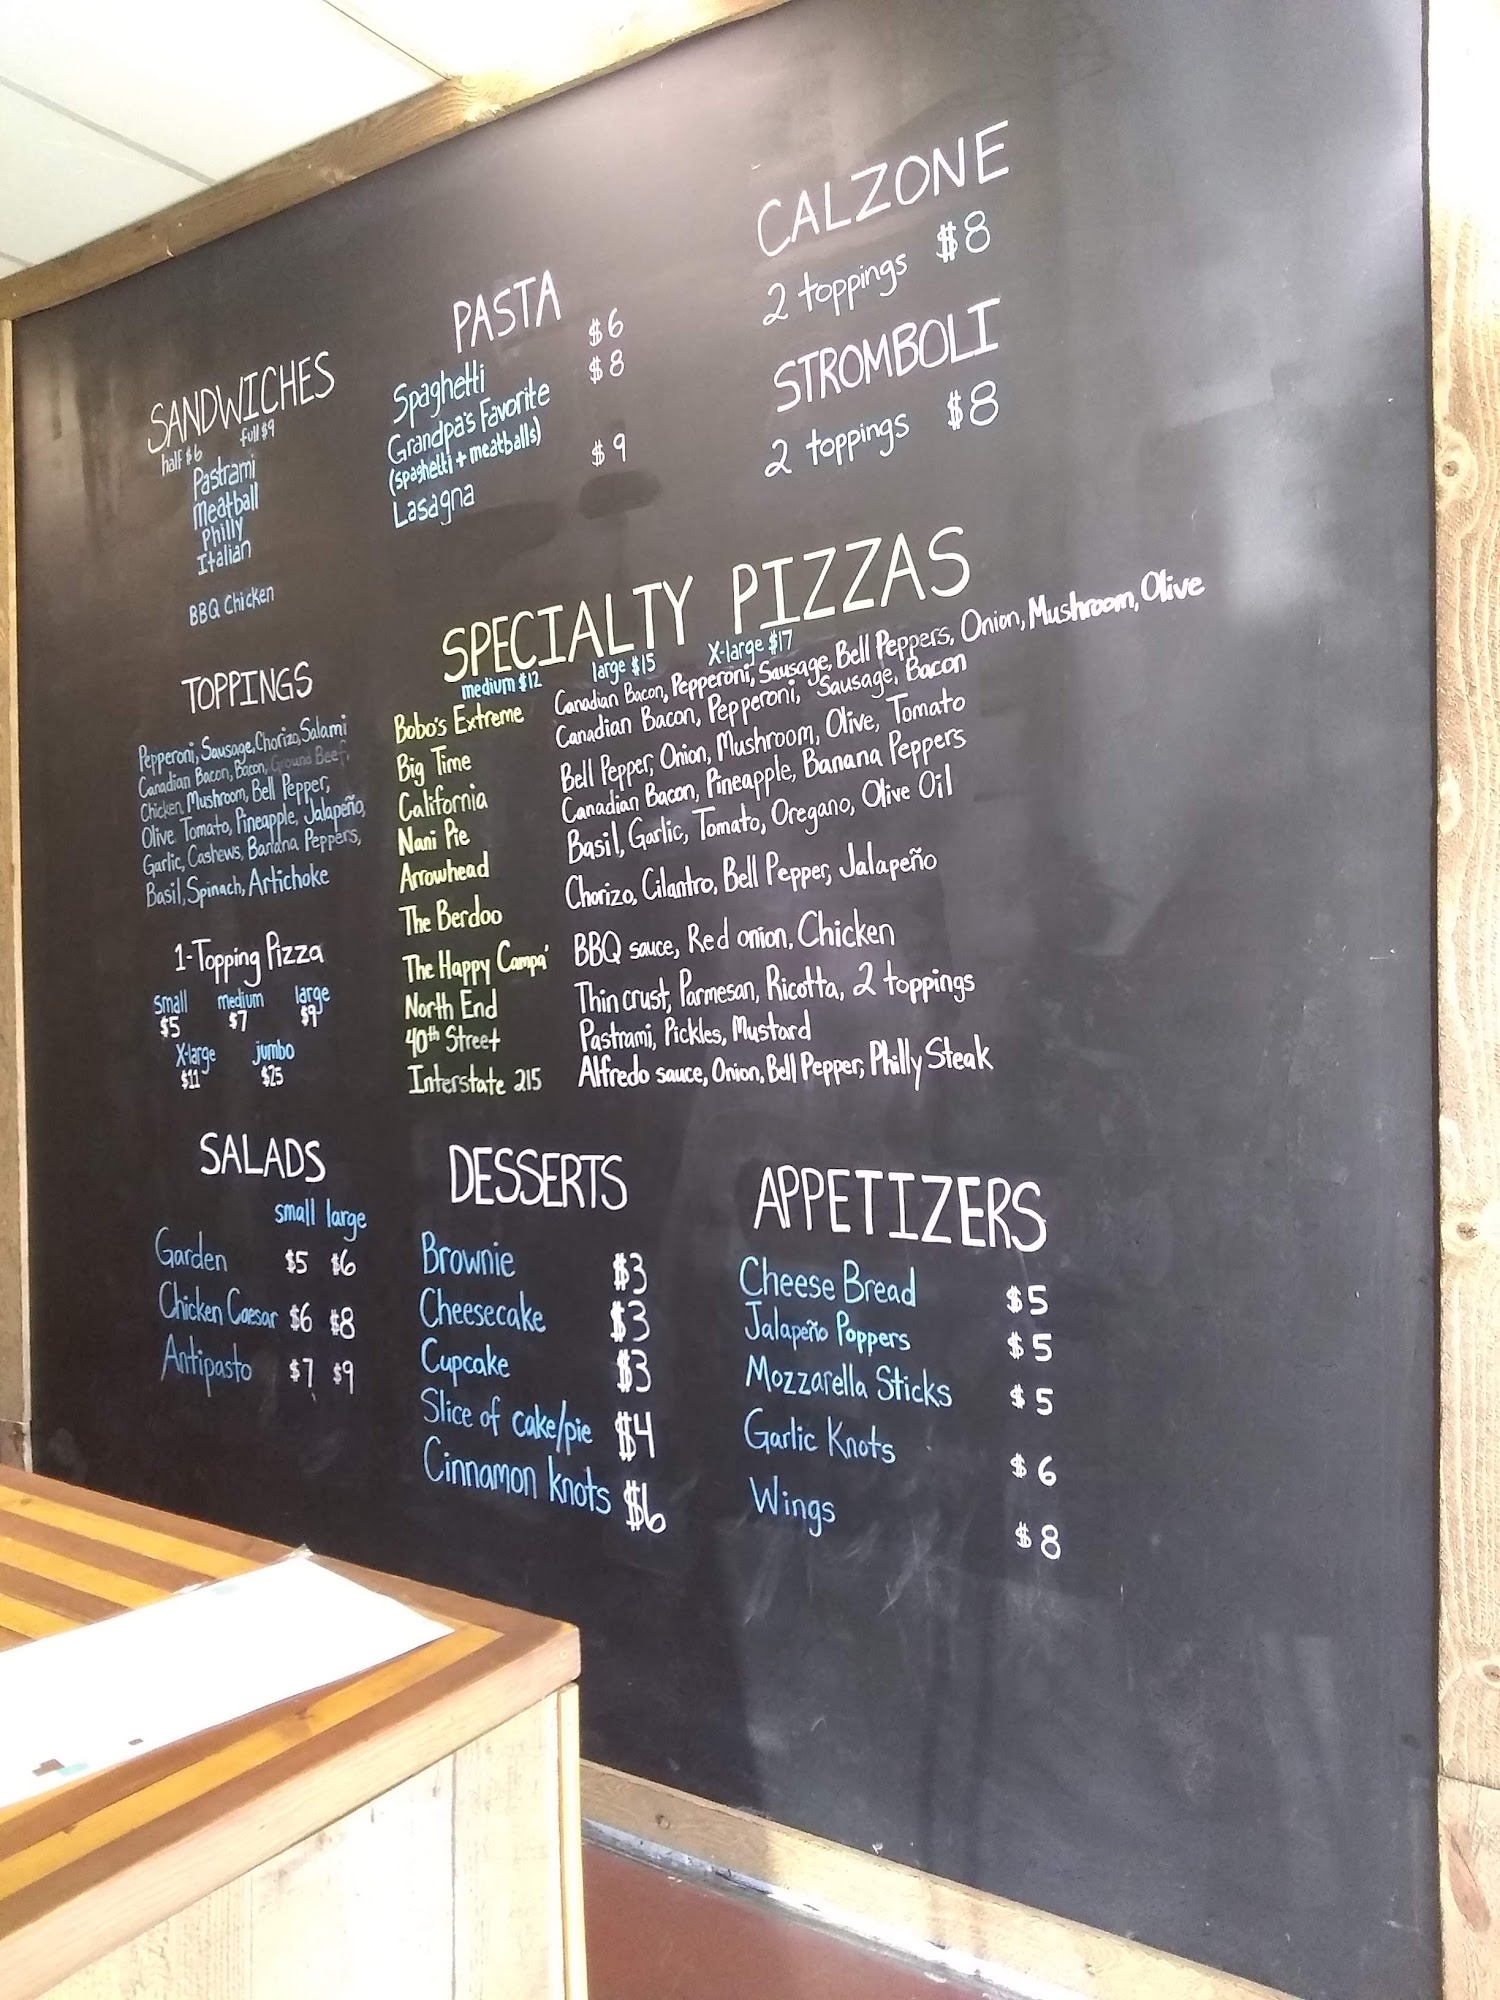 SANDWICHES
half $6 full $9
Pastrami
Meatball
Philly
Italian
BBQ Chicken
PASTA
Spaghetti $6
Grandpa's Favorite $8
(spaghetti + meatballs)
Lasagna $9
CALZONE
2 toppings $8
STROMBOLI
2 toppings $8
TOPPINGS
Pepperoni, Sausage, Chorizo, Salami
Canadian Bacon, Bacon, Ground Beef,
Chicken, Mushroom, Bell Pepper,
Olive, Tomato, Pineapple, Jalapeño,
Garlic, Cashews, Banana Peppers,
Basil, Spinach, Artichoke
1-Topping Pizza
small medium large
$5 $7 $9
X-large jumbo
$11 $25
SPECIALTY PIZZAS
medium $12 large $15 X-large $17
Bobo's Extreme Canadian Bacon, Pepperoni, Sausage, Bell Peppers, Onion, Mushroom, Olive
Big Time Canadian Bacon, Pepperoni, Sausage, Bacon
California Bell Pepper, Onion, Mushroom, Olive, Tomato
Nani Pie Canadian Bacon, Pineapple, Banana Peppers
Arrowhead Basil, Garlic, Tomato, Oregano, Olive Oil
The Berdoo Chorizo, Cilantro, Bell Pepper, Jalapeño
The Happy Campa' BBQ sauce, Red onion, Chicken
North End Thin crust, Parmesan, Ricotta, 2 toppings
40th Street Pastrami, Pickles, Mustard
Interstate 215 Alfredo sauce, Onion, Bell Pepper, Philly Steak
SALADS
small large
Garden $5 $6
Chicken Caesar $6 $8
Antipasto $7 $9
DESSERTS
Brownie $3
Cheesecake $3
Cupcake $3
Slice of cake/pie $4
Cinnamon knots $6
APPETIZERS
Cheese Bread $5
Jalapeño Poppers $5
Mozzarella Sticks $5
Garlic Knots $6
Wings $8